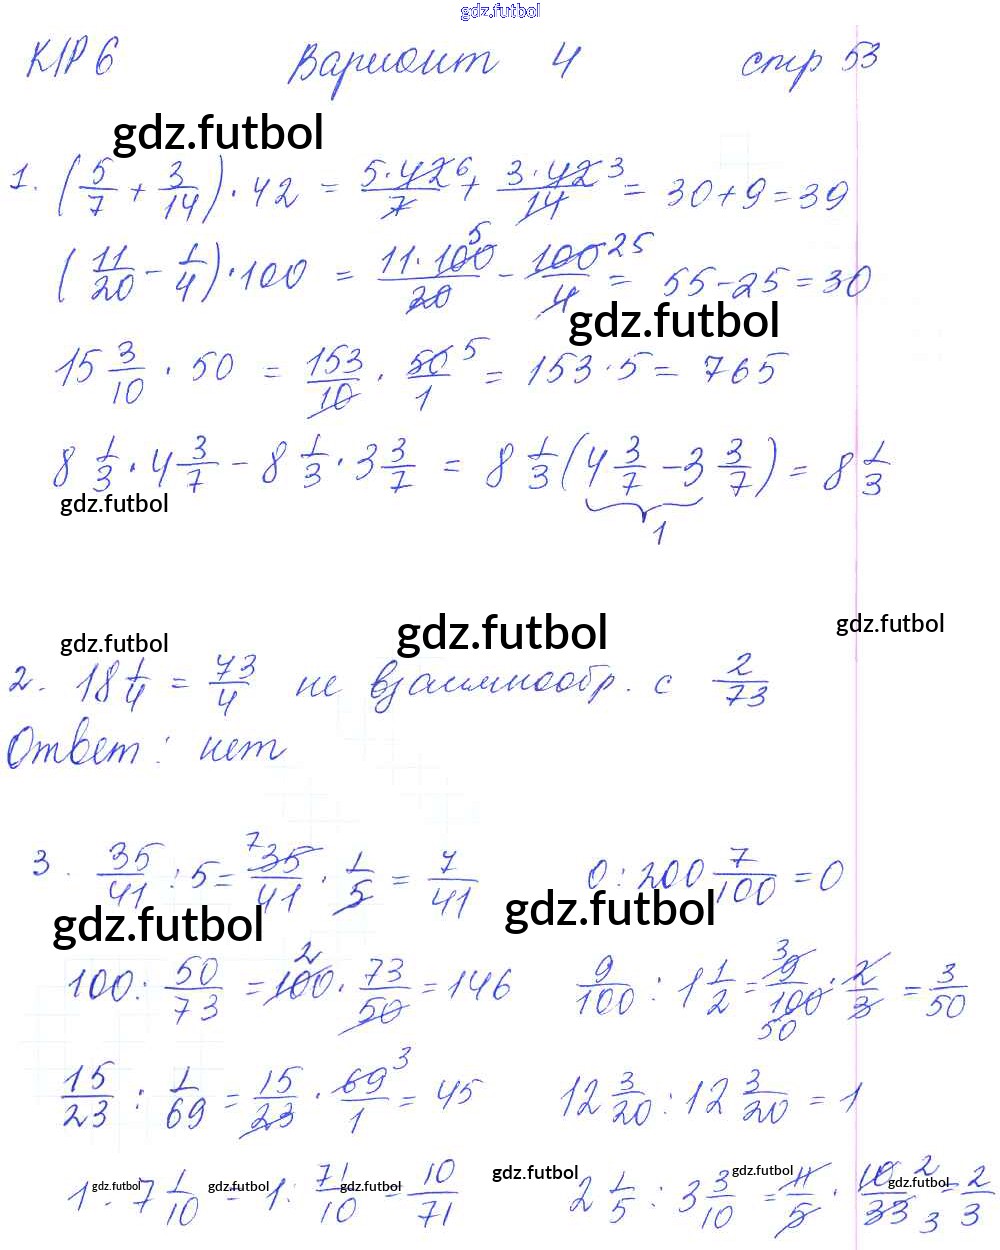 gdz.futbol
К/Р 6 Вариант 4 стр 53
gdz.futbol
1. (5/7 + 3/14) · 42 = 5·42/7 6 + 3·42/14 3 = 30 + 9 = 39
(11/20 - 1/4) · 100 = 11·100/20 5 - 100/4 25 = 55 - 25 = 30
gdz.futbol
15 3/10 · 50 = 153/10 · 50/1 5 = 153 · 5 = 765
8 1/3 · 4 3/7 - 8 1/3 · 3 3/7 = 8 1/3 (4 3/7 - 3 3/7) = 8 1/3
gdz.futbol
1
gdz.futbol gdz.futbol gdz.futbol
2. 18 1/4 = 73/4 не взаимнообр. с 2/73
Ответ: нет
3. 35/41 : 5 = 7 35/41 · 1/5 = 7/41 0 : 200 7/100 = 0
gdz.futbol gdz.futbol
100 : 50/73 = 2 100 · 73/50 = 146 9/100 : 1 1/2 = 3 9/100 50 · 2/3 = 3/50
15/23 : 1/69 = 15/23 · 69/1 3 = 45 12 3/20 : 12 3/20 = 1
gdz.futbol gdz.futbol
1 : 7 1/10 = 1 : 71/10 = 10/71 2 1/5 : 3 3/10 = 11/5 · 10/33 2 3 = 2/3
gdz.futbol gdz.futbol gdz.futbol gdz.futbol